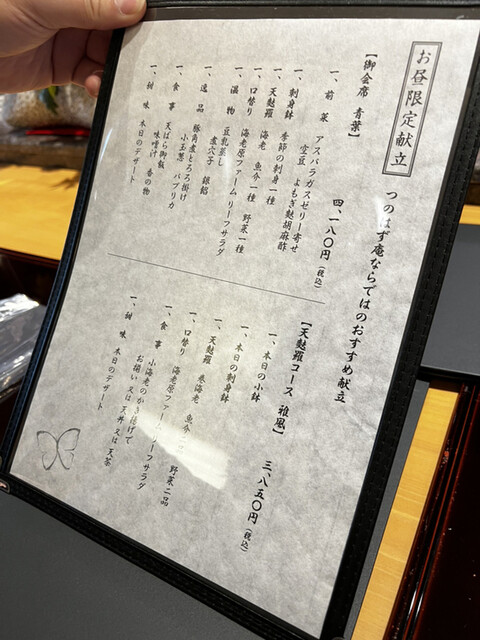 お昼限定献立
つのはず庵ならではのおすすめ献立
【御会席 青葉】
四、一八〇円(税込)
一、前菜 アスパラガスゼリー寄せ
空豆 よもぎ麩胡麻酢
一、刺身鉢 季節の刺身一種
一、天麩羅 海老 魚介一種 野菜一種
一、口替り 海老原ファームリーフサラダ
一、温物 豆乳蒸し
煮穴子 銀餡
一、逸品 豚角煮とろろ掛け
小玉葱 パプリカ
一、食事 天ばら御飯
味噌汁 香の物
一、甜味 本日のデザート
【天麩羅コース 雅風】
三、八五〇円(税込)
一、本日の小鉢
一、本日の刺身鉢
一、天麩羅 巻海老 魚介二品 野菜二品
一、口替り 海老原ファームリーフサラダ
一、食事 小海老のかき揚げで
お揃い又は天丼又は天茶
一、甜味 本日のデザート